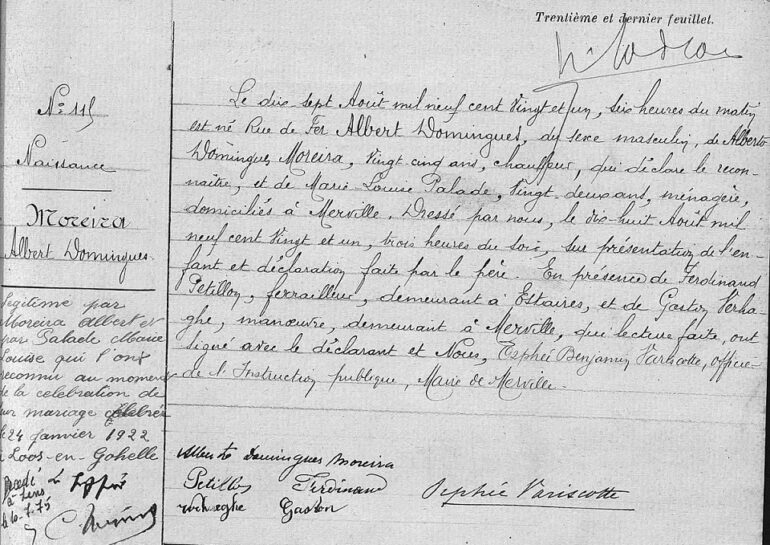 Trentième et dernier feuillet.
N° 115
Naissance
Moreira
Albert Domingues.
Légitimé par
Moreira Albert et
par Palade Marie
Louise qui l'ont
reconnu au moment
de la célébration de
leur mariage célébré
le 24 janvier 1922
à Loos-en-Gohelle
Le Greffier
Décédé
à Lens
le 10-7-75
Le dix sept Août mil neuf cent Vingt et un, six heures du matin
est né Rue de Fer Albert Domingues, du sexe masculin, de Alberto
Domingues Moreira, Vingt cinq ans, chauffeur, qui déclare le recon-
naître, et de Marie-Louise Palade, Vingt deux ans, ménagère,
domiciliés à Merville. Dressé par nous, le dix-huit Août mil
neuf cent Vingt et un, trois heures du soir, sur présentation de l'en-
fant et déclaration faite par le père. En présence de Ferdinand
Petillon, ferrailleur, demeurant à Estaires, et de Gaston Verha-
ghe, manœuvre, demeurant à Merville, qui lecture faite, ont
signé avec le déclarant et Nous, Orphée Benjamin Variscotte, officier
de l'Instruction publique, Maire de Merville.
Alberto Domingues Moreira
Petillon Ferdinand
Gaston
Orphée Variscotte